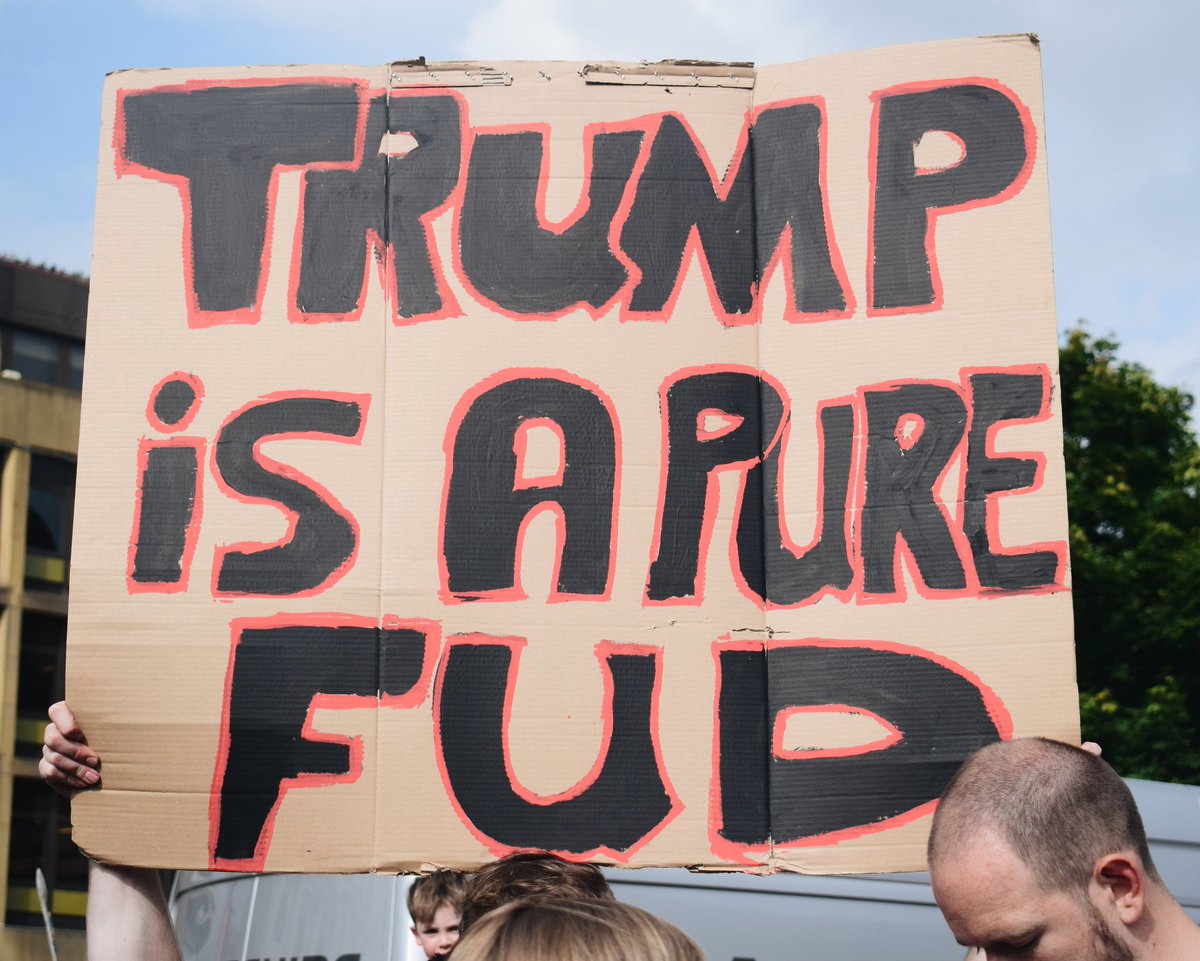 TRUMP
iS A PURE
FUD